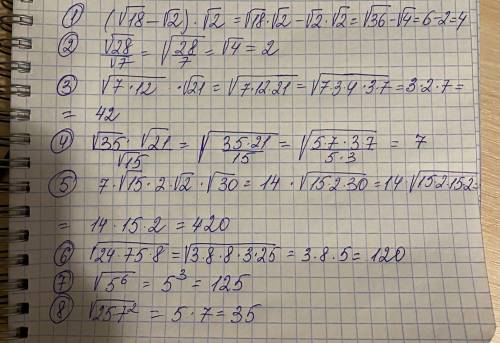 ① (√18 - √2) · √2 = √18 · √2 - √2 · √2 = √36 - √4 = 6 - 2 = 4
② √28/√7 = √(28/7) = √4 = 2
③ √(7 · 12) · √21 = √(7 · 12 · 21) = √(7 · 3 · 4 · 3 · 7) = 3 · 2 · 7 =
= 42
④ √35 · √21/√15 = √(35 · 21/15) = √(5 · 7 · 3 · 7/5 · 3) = 7
⑤ 7 · √15 · 2 · √2 · √30 = 14 · √(15 · 2 · 30) = 14 √(15 · 2 · 15 · 2) =
= 14 · 15 · 2 = 420
⑥ √(24 · 75 · 8) = √(3 · 8 · 8 · 3 · 25) = 3 · 8 · 5 = 120
⑦ √5⁶ = 5³ = 125
⑧ √(25 · 7²) = 5 · 7 = 35